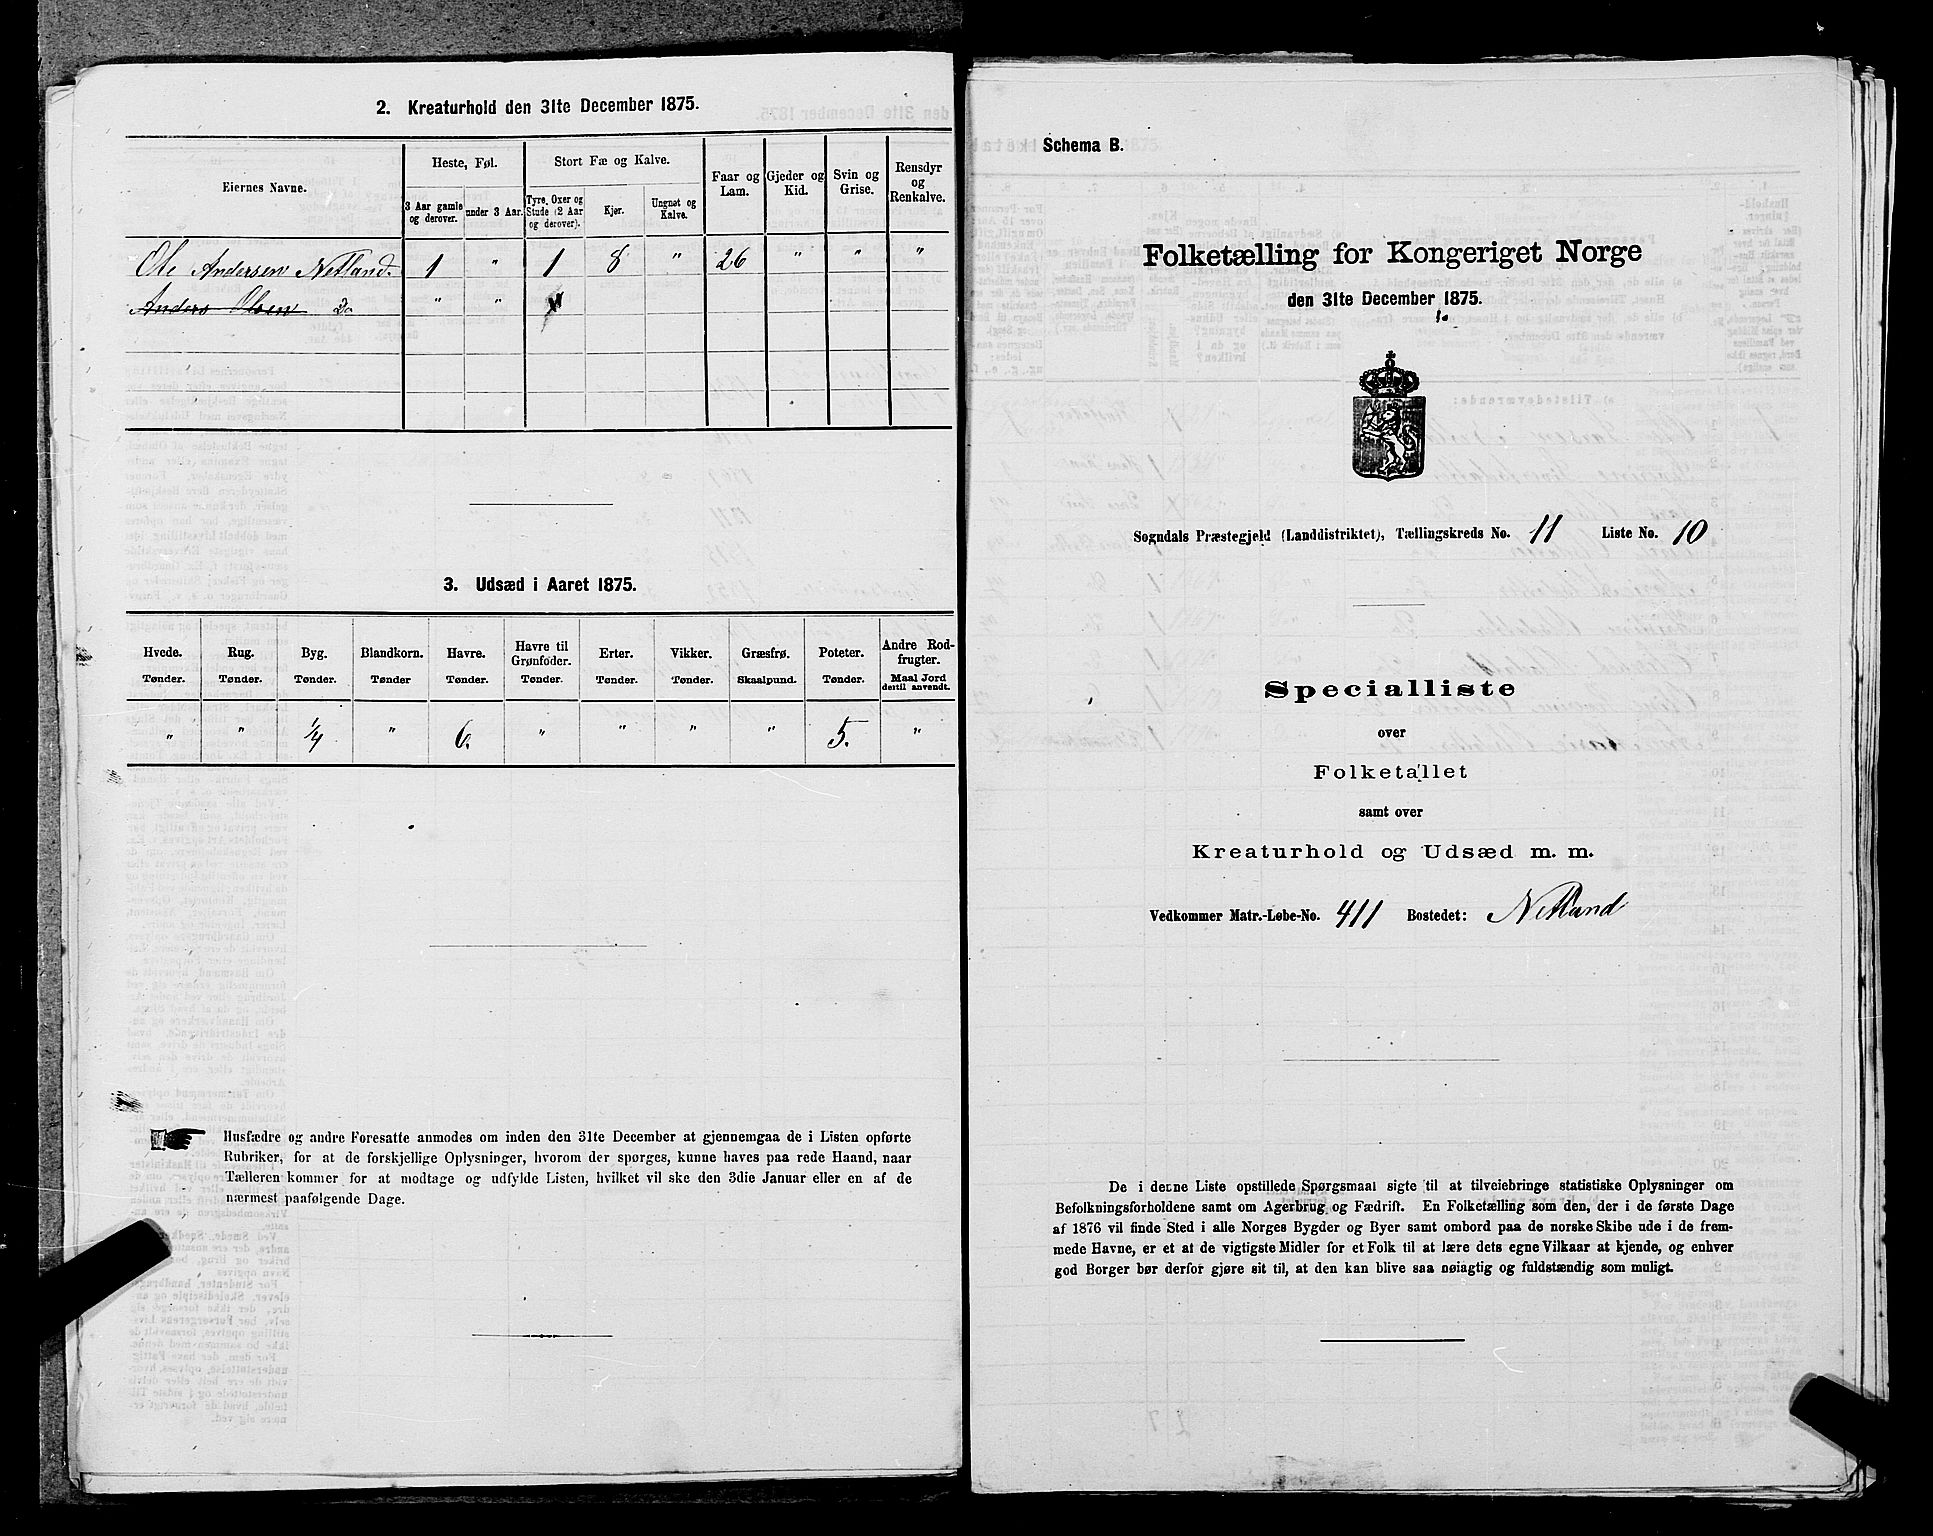 2. Kreaturhold den 31te December 1875.
Eiernes Navne.
Heste, Føl.
Stort Fæ og Kalve.
Faar og Lam.
Gjeder og Kid.
Svin og Grise.
Rensdyr og Renkalve.
3 Aar gamle og derover.
under 3 Aar.
Tyre, Oxer og Stude (2 Aar og derover).
Kjør.
Ungnøt og Kalve.
Ole Andersen Netland. 1 " 1 8 " 26 " " "
Anders Olsen " "
3. Udsæd i Aaret 1875.
Hvede. Rug. Byg. Blandkorn. Havre. Havre til Grønfoder. Erter. Vikker. Græsfrø. Poteter. Andre Rodfrugter.
Tønder. Tønder. Tønder. Tønder Tønder. Tønder. Tønder. Tønder. Skaalpund. Tønder. Maal Jord dertil anvendt.
" " 1/4 " 6. " " " " 5. "
Husfædre og andre Foresatte anmodes om inden den 31te December at gjennemgaa de i Listen opførte
Rubriker, for at de forskjellige Oplysninger, hvorom der spørges, kunne haves paa rede Haand, naar
Tælleren kommer for at modtage og udfylde Listen, hvilket vil ske den 3die Januar eller en af de
nærmest paafølgende Dage.
Schema B.
Folketælling for Kongeriget Norge
den 31te December 1875.
Sogndals Præstegjeld (Landdistriktet), Tællingskreds No. 11 Liste No. 10
Specialliste
over
Folketallet
samt over
Kreaturhold og Udsæd m. m.
Vedkommer Matr.-Løbe-No. 411 Bostedet: Netland
De i denne Liste opstillede Spørgsmaal sigte til at tilveiebringe statistiske Oplysninger om
Befolkningsforholdene samt om Agerbrug og Fædrift. En Folketælling som den, der i de første Dage
af 1876 vil finde Sted i alle Norges Bygder og Byer samt ombord paa de norske Skibe ude i de frem-
mede Havne, er et af de vigtigste Midler for et Folk til at lære dets egne Vilkaar at kjende, og enhver
god Borger bør derfor gjøre sit til, at den kan blive saa nøiagtig og fuldstændig som muligt.